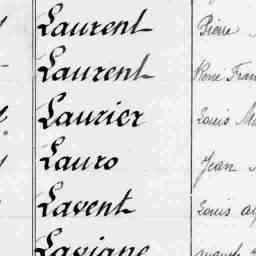 Laurent Pierre
Laurent René Fran
Laurier Louis Ma
Lauro Jean
Lavent Louis au
Lavigne